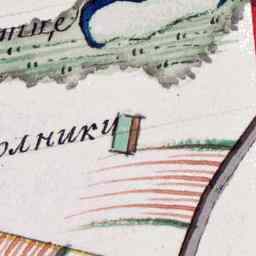 тце
олники